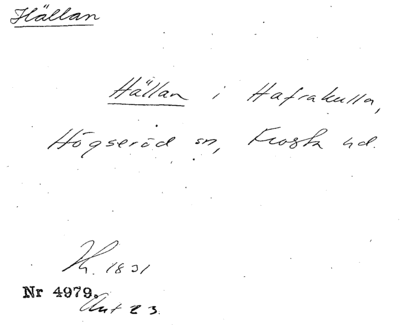 Hällan
Hällan i Hafrakulla,
Högseröd sn, Frosta hd.
Kh. 1831
Nr 4979.
Ant 23.